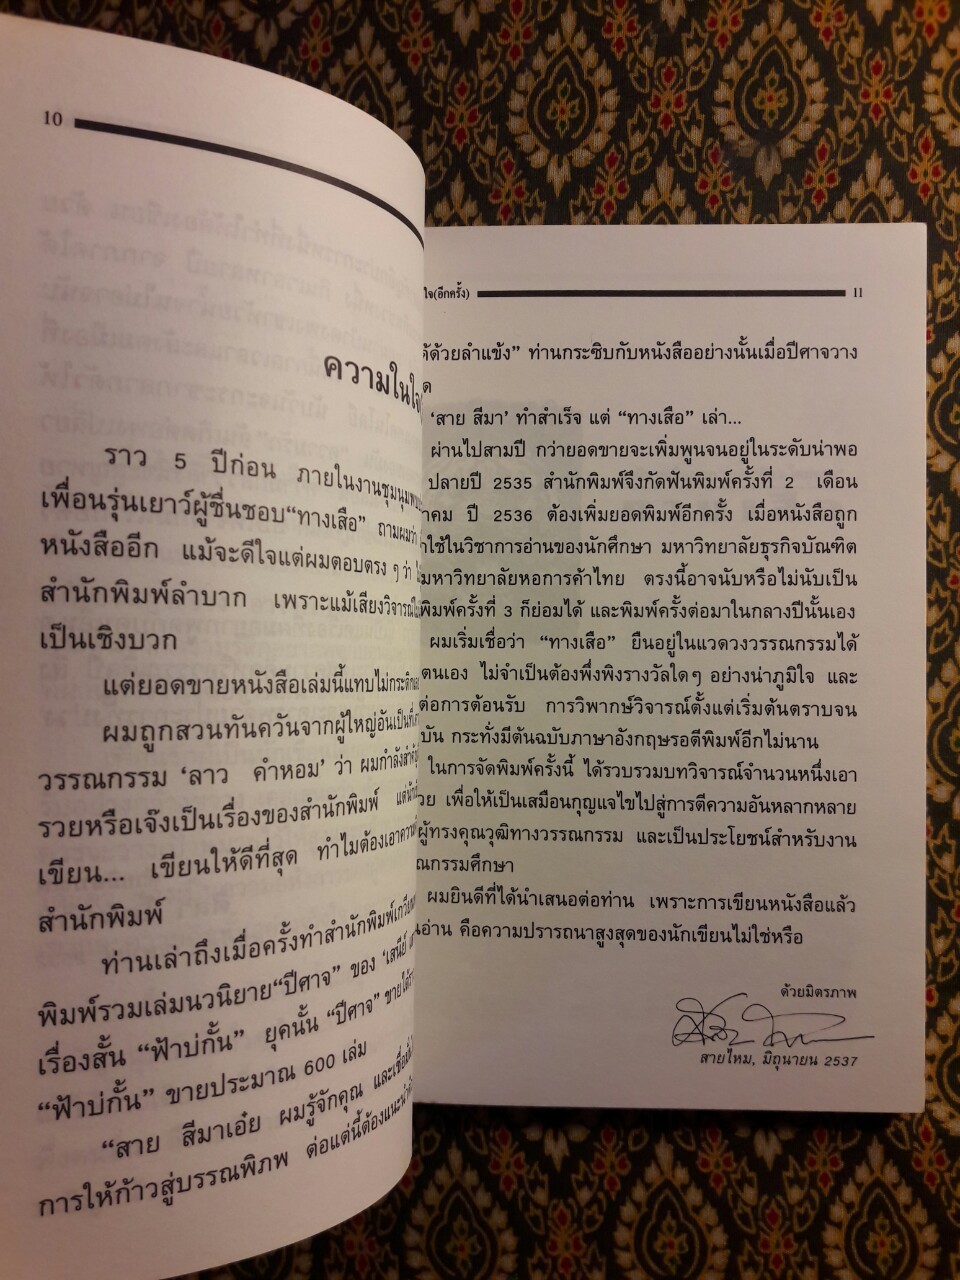 10
ความในใจ
ราว 5 ปีก่อน ภายในงานชุมนุม
เพื่อนรุ่นเยาว์ผู้ชื่นชอบ“ทางเสือ” ถามผมว่า
หนังสืออีก แม้จะดีใจแต่ผมตอบตรง ๆ ว่า
สำนักพิมพ์ลำบาก เพราะแม้เสียงวิจารณ์
เป็นเชิงบวก
แต่ยอดขายหนังสือเล่มนี้แทบไม่กระดิก
ผมถูกสวนทันควันจากผู้ใหญ่อันเป็นที่
วรรณกรรม ‘ลาว คำหอม’ ว่า ผมกำลัง
รวยหรือเจ๊งเป็นเรื่องของสำนักพิมพ์
เขียน... เขียนให้ดีที่สุด ทำไมต้องเอาความ
สำนักพิมพ์
ท่านเล่าถึงเมื่อครั้งทำสำนักพิมพ์เกวียน
พิมพ์รวมเล่มนวนิยาย“ปีศาจ” ของ ‘เสนีย์
เรื่องสั้น “ฟ้าบ่กั้น” ยุคนั้น “ปีศาจ” ขายได้
“ฟ้าบ่กั้น” ขายประมาณ 600 เล่ม
“สาย สีมาเอ๋ย ผมรู้จักคุณ และเชื่อ
การให้ก้าวสู่บรรณพิภพ ต่อแต่นี้ต้องแนะนำ
ใจ(อีกครั้ง) 11
ด้วยลำแข้ง” ท่านกระซิบกับหนังสืออย่างนั้นเมื่อปีศาจวาง
‘สาย สีมา’ ทำสำเร็จ แต่ “ทางเสือ” เล่า...
ผ่านไปสามปี กว่ายอดขายจะเพิ่มพูนจนอยู่ในระดับน่าพอ
ปลายปี 2535 สำนักพิมพ์จึงกัดฟันพิมพ์ครั้งที่ 2 เดือน
าคม ปี 2536 ต้องเพิ่มยอดพิมพ์อีกครั้ง เมื่อหนังสือถูก
ใช้ในวิชาการอ่านของนักศึกษา มหาวิทยาลัยธุรกิจบัณฑิต
มหาวิทยาลัยหอการค้าไทย ตรงนี้อาจนับหรือไม่นับเป็น
พิมพ์ครั้งที่ 3 ก็ย่อมได้ และพิมพ์ครั้งต่อมาในกลางปีนั้นเอง
ผมเริ่มเชื่อว่า “ทางเสือ” ยืนอยู่ในแวดวงวรรณกรรมได้
ตนเอง ไม่จำเป็นต้องพึ่งพิงรางวัลใดๆ อย่างน่าภูมิใจ และ
ต่อการต้อนรับ การวิพากษ์วิจารณ์ตั้งแต่เริ่มต้นตราบจน
บัน กระทั่งมีต้นฉบับภาษาอังกฤษรอตีพิมพ์อีกไม่นาน
ในการจัดพิมพ์ครั้งนี้ ได้รวบรวมบทวิจารณ์จำนวนหนึ่งเอา
วย เพื่อให้เป็นเสมือนกุญแจไขไปสู่การตีความอันหลากหลาย
ผู้ทรงคุณวุฒิทางวรรณกรรม และเป็นประโยชน์สำหรับงาน
ณกรรมศึกษา
ผมยินดีที่ได้นำเสนอต่อท่าน เพราะการเขียนหนังสือแล้ว
อ่าน คือความปรารถนาสูงสุดของนักเขียนไม่ใช่หรือ
ด้วยมิตรภาพ
สายไหม, มิถุนายน 2537